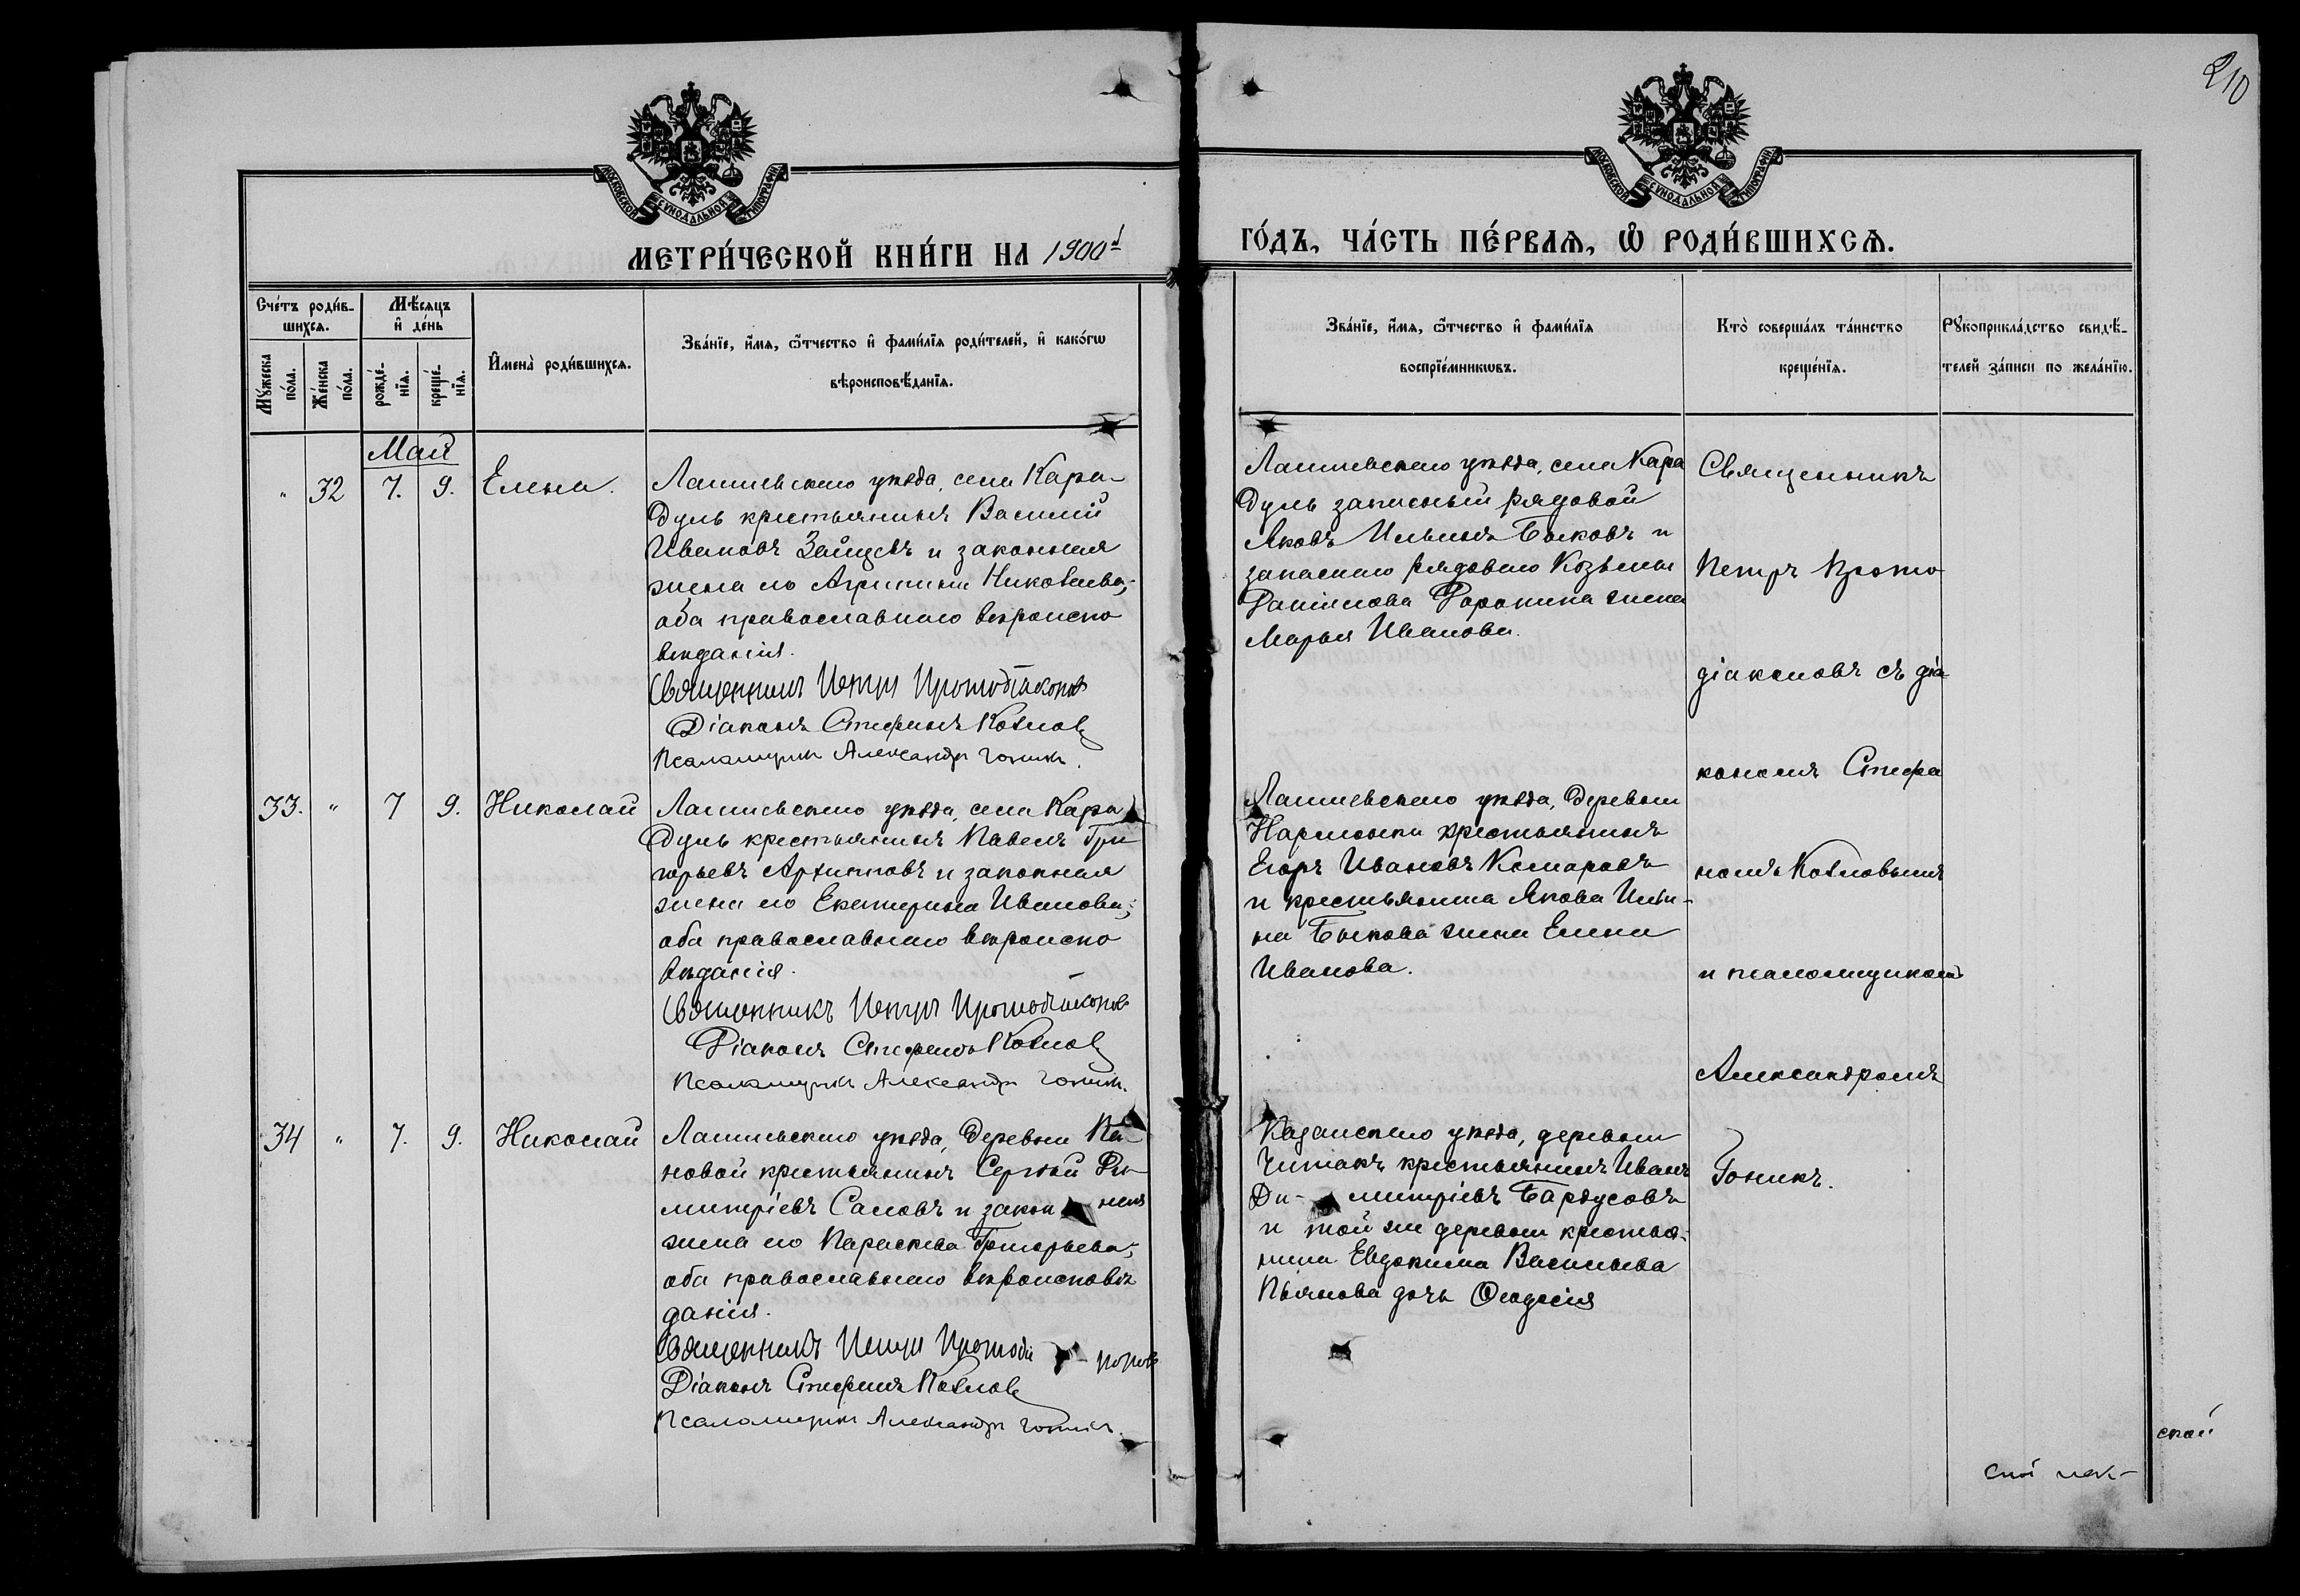 210
МОСКОВСКОЙ СУНОДАЛЬНОЙ ТИПОГРАФІИ
МОСКОВСКОЙ СУНОДАЛЬНОЙ ТИПОГРАФІИ
МЕТРИ́ЧЕСКОЙ КНИ́ГИ НА 1900й
ГО́ДЪ, ЧА́СТЬ ПЕ́РВАѦ, Ѡ҆ РОДИ́ВШИХСѦ.
Сче́тъ роди́в-
шихсѧ.
Мꙋжеска
по́ла.
Же́нска
по́ла.
Мѣ́сѧцъ
и҆ де́нь
рожде́-
нїѧ.
креще́-
нїѧ.
И҆мена̀ роди́вшихсѧ.
Зва́нїе, и҆́мѧ, ѻ҆́тчество и҆ фами́лїѧ роди́телей, и҆ како́гѡ
вѣроисповѣ́данїѧ.
Зва́нїе, и҆́мѧ, ѻ҆́тчество и҆ фами́лїѧ
воспрїе́мникѡвъ.
Кто̀ соверша́лъ та́инство
креще́нїѧ.
Рꙋкоприкла́дство свидѣ́-
телей за́писи по жела́нїю.
Май
" 32 7. 9. Елена.
Лаишевскаго уѣзда, села Кара-
дуль крестьянинъ Василій
Ивановъ Зайцевъ и законная
жена его Агрипина Николаева;
оба православнаго вѣроиспо
вѣданія.
Священникъ Петръ Протодіаконовъ
Діаконъ Стефанъ Козлов
Псаломщикъ Александръ Гоникъ.
Лаишевскаго уѣзда, села Кара
дуль запасный рядовой
Яковъ Ильинъ Быковъ и
запаснаго рядоваго Козьмы
Фаронина жена
Марья Иванова.
33. " 7 9. Николай
Лаишевскаго уѣзда, села Кара
дуль крестьянинъ Павелъ Гри
горьевъ Архиповъ и законная
жена его Екатерина Иванова;
оба православнаго вѣроиспо
вѣданія.
Священникъ Петръ Протодіаконовъ
Діаконъ Стефанъ Козлов
Псаломщикъ Александръ Гоникъ.
Лаишевскаго уѣзда, деревни
Нармонки крестьянинъ
Егоръ Ивановъ Комаровъ
и крестьянина Якова Ильи-
на Быкова жена Елена
Иванова.
34 " 7. 9. Николай
Лаишевскаго уѣзда, деревни Па-
новой крестьянинъ Сергѣй Ди
митріевъ Самовъ и закон ная
жена его Параскева Григорьева;
оба православнаго вѣроисповѣ
данія.
Священникъ Петръ Протодіа коновъ
Діаконъ Стефанъ Козлов
Псаломщикъ Александръ Гоникъ.
Казанскаго уѣзда, деревни
Читакъ крестьянинъ Иванъ
Ди- митріевъ Бардусовъ
и той же деревни крестья-
нина Евдокима Васильева
Пьянова дочь Ѳеодосія
Священникъ
Петръ Прото
діаконовъ съ діа-
кономъ Стефа
номъ Козловымъ
и псаломщикомъ
Александромъ
Гоникъ.
ской